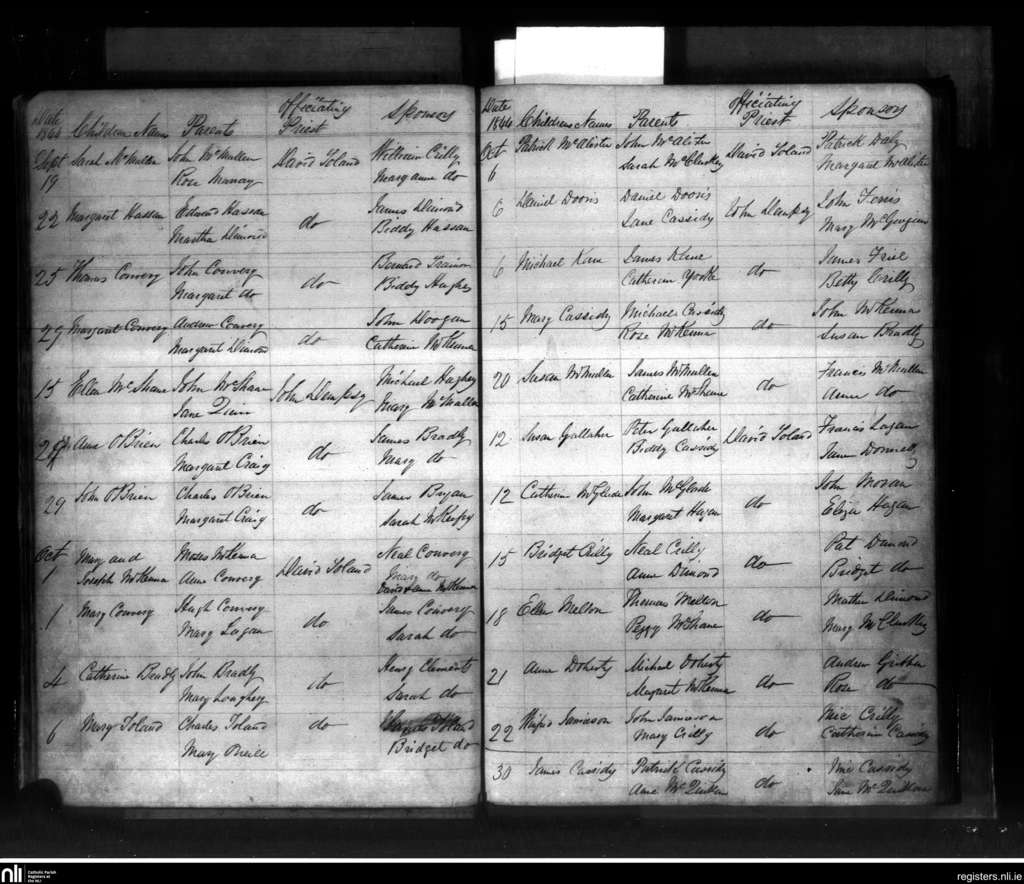 Date 1844 Childrens Names Parents Officiating Priest Sponsors
Sept 19 Sarah McMullen John McMullen David Toland William Crilly
Rose Mary anne do
22 Margaret Hassan Edward Hassan do James Dimond
Martha Dimond Biddy Hassan
25 Thomas Convery John Convery do Bernard Trainor
Margaret do Biddy Hughes
29 Margaret Convery Andrew Convery do John
Margaret Dimond Catherine McKenna
15 Ellen McShane John McShane John Dempsy Michael Hughey
Jane Quinn Mary McMullen
Anne O'Brien Charles O'Brien do James Bradly
Margaret Craig Mary do
29 John O'Brien Charles O'Brien do James Bryan
Margaret Craig Sarah
Oct 1 Mary and Moses McKenna David Toland Neal Convery
Joseph McKenna Anne Convery Mary do
McKenna
1 Mary Convery Hugh Convery do James Convery
Mary Lagan Sarah do
4 Catherine Bradly John Bradly do Henry Clements
Mary Loughery Sarah do
6 Mary Toland Charles Toland do Toland
Mary Bridget do
Date 1844 Childrens Names Parents Officiating Priest Sponsors
Oct 6 Patrick McAlister John McAlister David Toland Patrick Daly
Sarah McCluskey Margaret McAlister
6 Daniel Dooris Daniel Dooris John Dempsy John Ferris
Jane Cassidy Mary McGurgan
6 Michael Kane James Kane do James Friel
Catherine Betty Crilly
15 Mary Cassidy Michael Cassidy do John McKenna
Rose McKenna Susan Bradly
20 Susan McMullen James McMullen do Francis McMullen
Catherine McShane Anne do
12 Susan Gallaher Peter Gallaher David Toland Francis Lagan
Biddy Cassidy Jane Donnelly
12 Catherine McGlade John McGlade do John Moran
Margaret Hagan Eliza Hagan
15 Bridget Crilly Neal Crilly do Pat Dimond
Anne Dimond Bridget do
18 Ellen Melton Thomas Melton do Mathew Dimond
Peggy McShane Mary McCluskey
21 Anne Doherty Michael Doherty do Andrew
Margaret McKenna Rose do
22 Jamieson John Jamieson do Mic Crilly
Mary Crilly Catherine Cassidy
30 James Cassidy Patrick Cassidy do Mic Cassidy
Anne McQuillan Jane McQuillan
nli Catholic Parish
Registers at
the NLI
registers.nli.ie